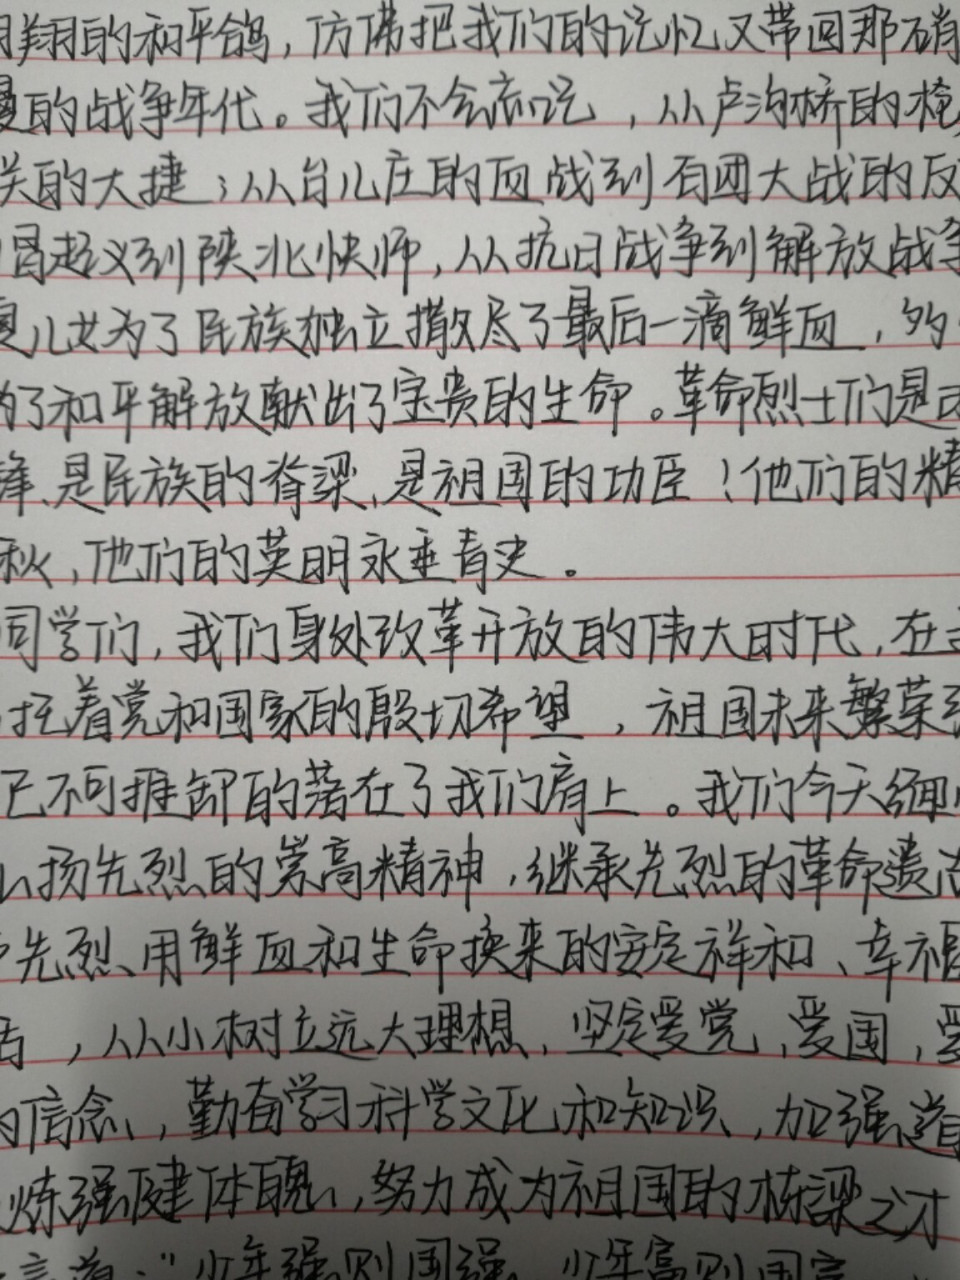 翔的和平鸽，仿佛把我们的记忆又带回那硝
的战争年代。我们不会忘记，从卢沟桥的枪
关的大捷；从台儿庄的血战到百团大战的反
昌起义到陕北快师，从抗日战争到解放战争
儿女为了民族独立撒尽了最后一滴鲜血，
为了和平解放献出了宝贵的生命。革命烈士们是
锋、是民族的脊梁、是祖国的功臣！他们的精
秋，他们的英明永垂青史。
同学们，我们身处改革开放的伟大时代，在
托着党和国家的殷切希望，祖国未来繁荣
已不可推卸的落在了我们肩上。我们今天缅
扬先烈的崇高精神，继承先烈的革命遗志
先烈、用鲜血和生命换来的安定祥和、幸福
活，从小树立远大理想，坚定爱党，爱国，爱
的信念，勤奋学习科学文化和知识，加强道
炼强健体魄，努力成为祖国的栋梁之才
言道：“少年强则国强，少年富则国富